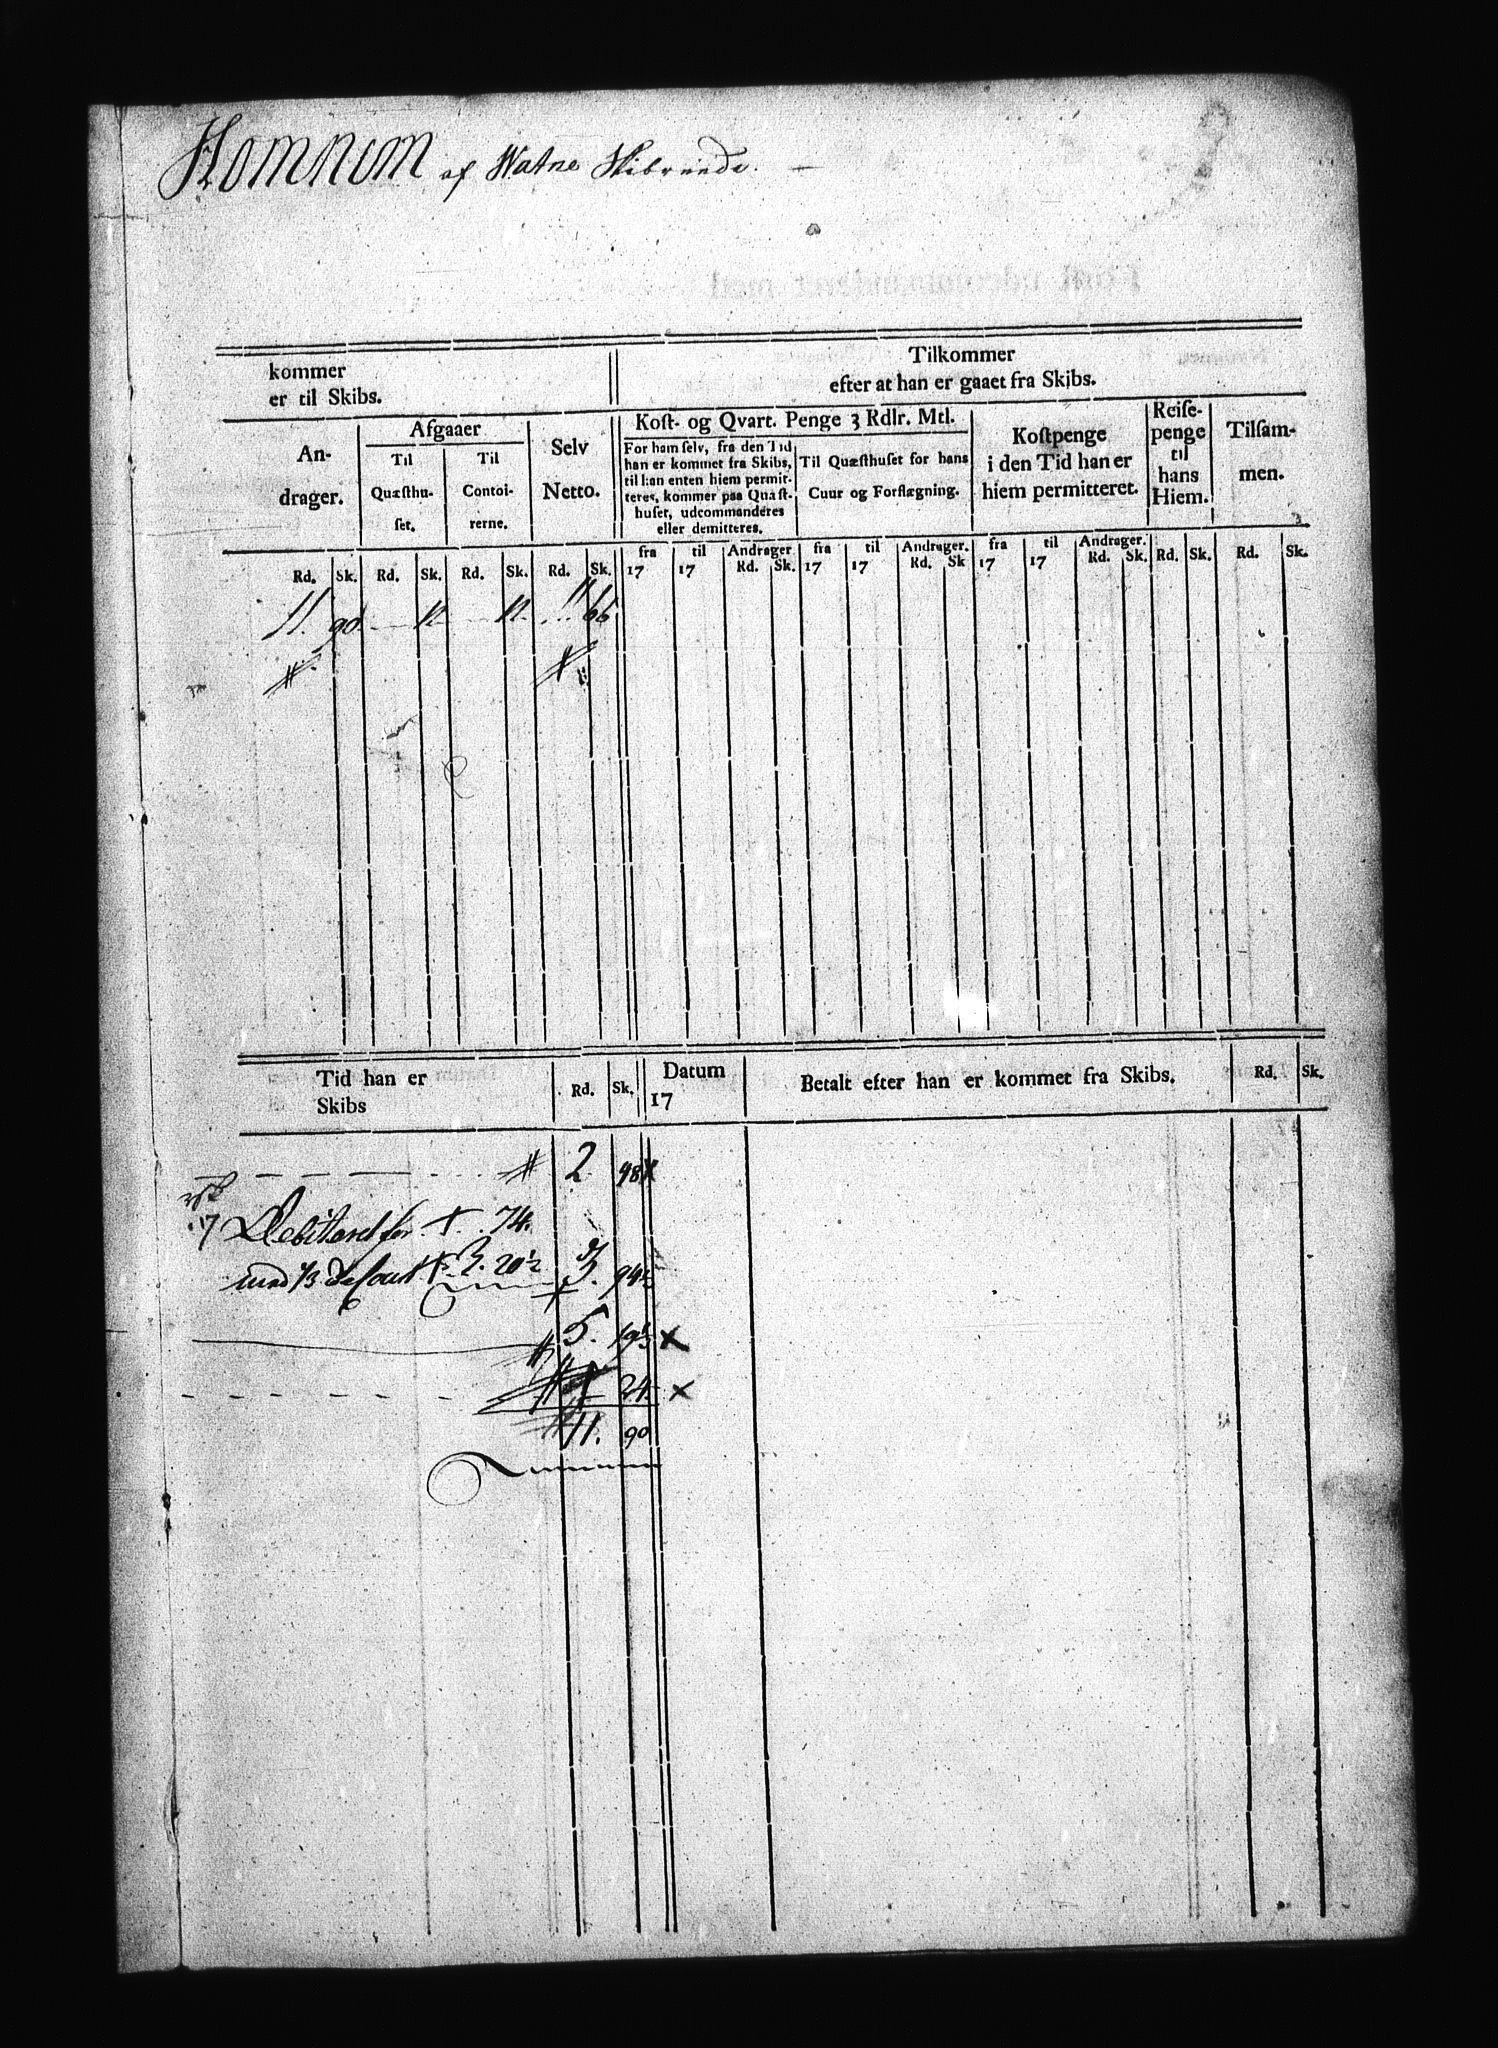 Homnum af Watne Skibreede.
kommer
er til Skibs.
Tilkommer
efter at han er gaaet fra Skibs.
An-
drager.
Afgaaer
Til
Quæsthu-
set.
Til
Contoi-
rerne.
Selv
Netto.
Kost- og Qvart. Penge 3 Rdlr. Mtl.
For ham selv, fra den Tid
han er kommet fra Skibs,
til han enten hiem permit-
teres, kommer paa Quæst-
huset, udcommanderes
eller demitteres.
Til Quæsthuset for hans
Cuur og Forflægning.
Kostpenge
i den Tid han er
hiem permitteret.
Reise-
penge
til
hans
Hiem.
Tilsam-
men.
Rd. Sk. Rd. Sk. Rd. Sk. Rd. Sk.
fra til Andrager. fra til Andrager. fra til Andrager.
17 17 Rd. Sk. 17 17 Rd. Sk 17 17 Rd. Sk. Rd. Sk. Rd. Sk.
11. 90. 12. 12. 11 66
Tid han er
Skibs
Rd. Sk.
Datum
17
Betalt efter han er kommet fra Skibs.
Rd. Sk.
2. 48 x
7 Debiteret for 74.
3. 20½
3. 94½
5. 19½ x
24. x
11. 90